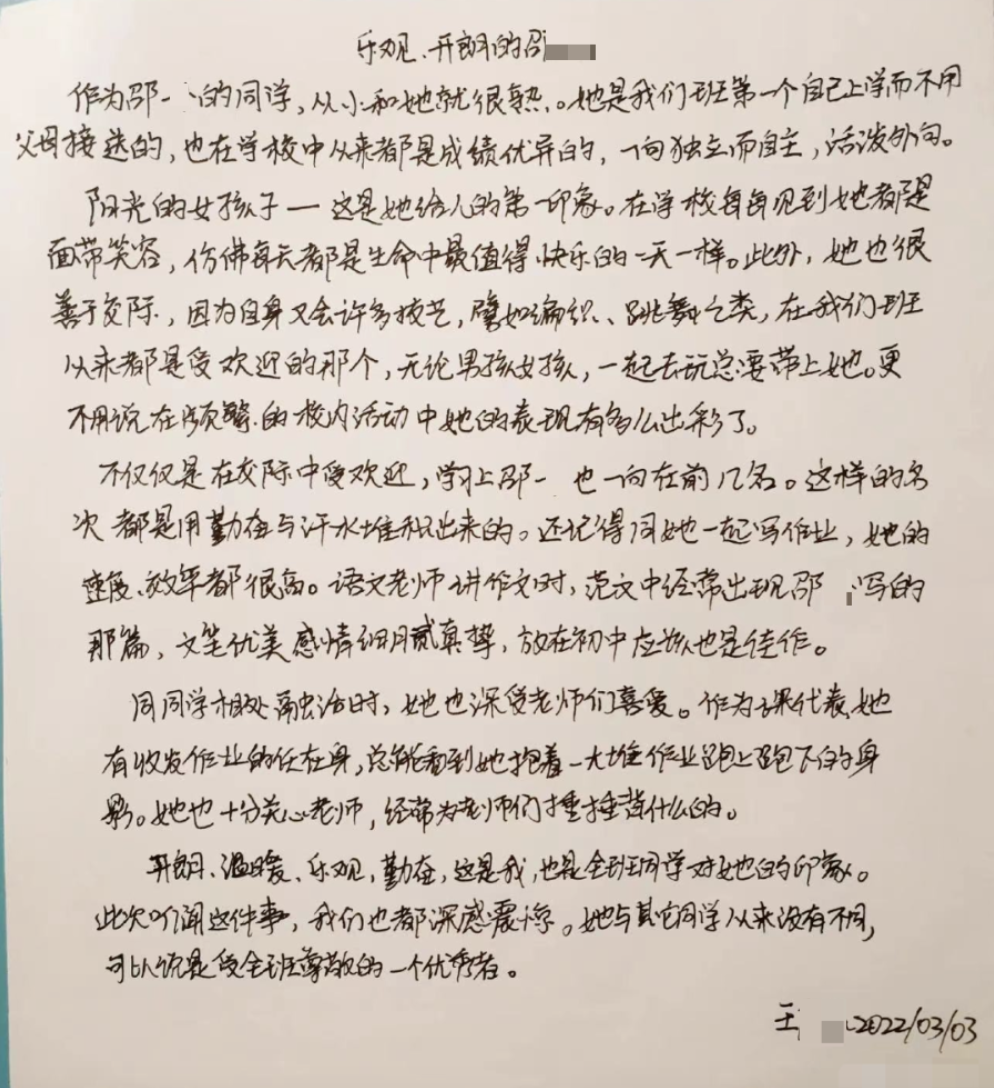 乐观、开朗的邵
作为邵一 的同学,从小和她就很熟。她是我们班第一个自己上学而不用
父母接送的,也在学校中从来都是成绩优异的,一向独立而自主,活泼外向。
阳光的女孩子—这是她给人的第一印象。在学校每每见到她都是
面带笑容,仿佛每天都是生命中最值得快乐的一天一样。此外,她也很
善于交际,因为自身又会许多技艺,譬如编织、跳舞之类,在我们班
从来都是受欢迎的那个,无论男孩女孩,一起去玩总要带上她。更
不用说在频繁的校内活动中她的表现有多么出彩了。
不仅仅是在交际中受欢迎,学习上邵一 也一向在前几名。这样的名
次都是用勤奋与汗水堆积出来的。还记得同她一起写作业,她的
速度、效率都很高。语文老师讲作文时,范文中经常出现邵 写的
那篇,文笔优美感情细腻真挚,放在初中应该也是佳作。
同同学相处融洽时,她也深受老师们喜爱。作为课代表,她
有收发作业的任在身,总能看到她抱着一大堆作业跑上跑下的身
影。她也十分关心老师,经常为老师们捶捶背什么的。
开朗、温暖、乐观,勤奋,这是我,也是全班同学对她的印象。
此次听闻这件事,我们也都深感震惊。她与其它同学从来没有不同,
可以说是受全班尊敬的一个优秀者。
王 2022/03/03